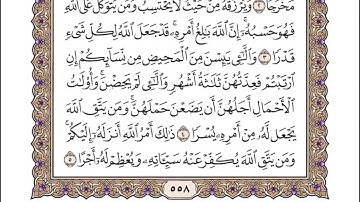 مَخْرَجًا ٢ وَيَرْزُقْهُ مِنْ حَيْثُ لَا يَحْتَسِبُ وَمَن يَتَوَكَّلْ عَلَى ٱللَّهِ
فَهُوَ حَسْبُهُۥٓ إِنَّ ٱللَّهَ بَٰلِغُ أَمْرِهِۦۚ قَدْ جَعَلَ ٱللَّهُ لِكُلِّ شَىْءٍ
قَدْرًا ٣ وَٱلَّٰٓـِٔى يَئِسْنَ مِنَ ٱلْمَحِيضِ مِن نِّسَآئِكُمْ إِنِ
ٱرْتَبْتُمْ فَعِدَّتُهُنَّ ثَلَٰثَةُ أَشْهُرٍ وَٱلَّٰٓـِٔى لَمْ يَحِضْنَۚ وَأُو۟لَٰتُ
ٱلْأَحْمَالِ أَجَلُهُنَّ أَن يَضَعْنَ حَمْلَهُنَّۚ وَمَن يَتَّقِ ٱللَّهَ
يَجْعَل لَّهُۥ مِنْ أَمْرِهِۦ يُسْرًا ٤ ذَٰلِكَ أَمْرُ ٱللَّهِ أَنزَلَهُۥٓ إِلَيْكُمْۚ
وَمَن يَتَّقِ ٱللَّهَ يُكَفِّرْ عَنْهُ سَيِّـَٔاتِهِۦ وَيُعْظِمْ لَهُۥٓ أَجْرًا ٥
٥٥٨